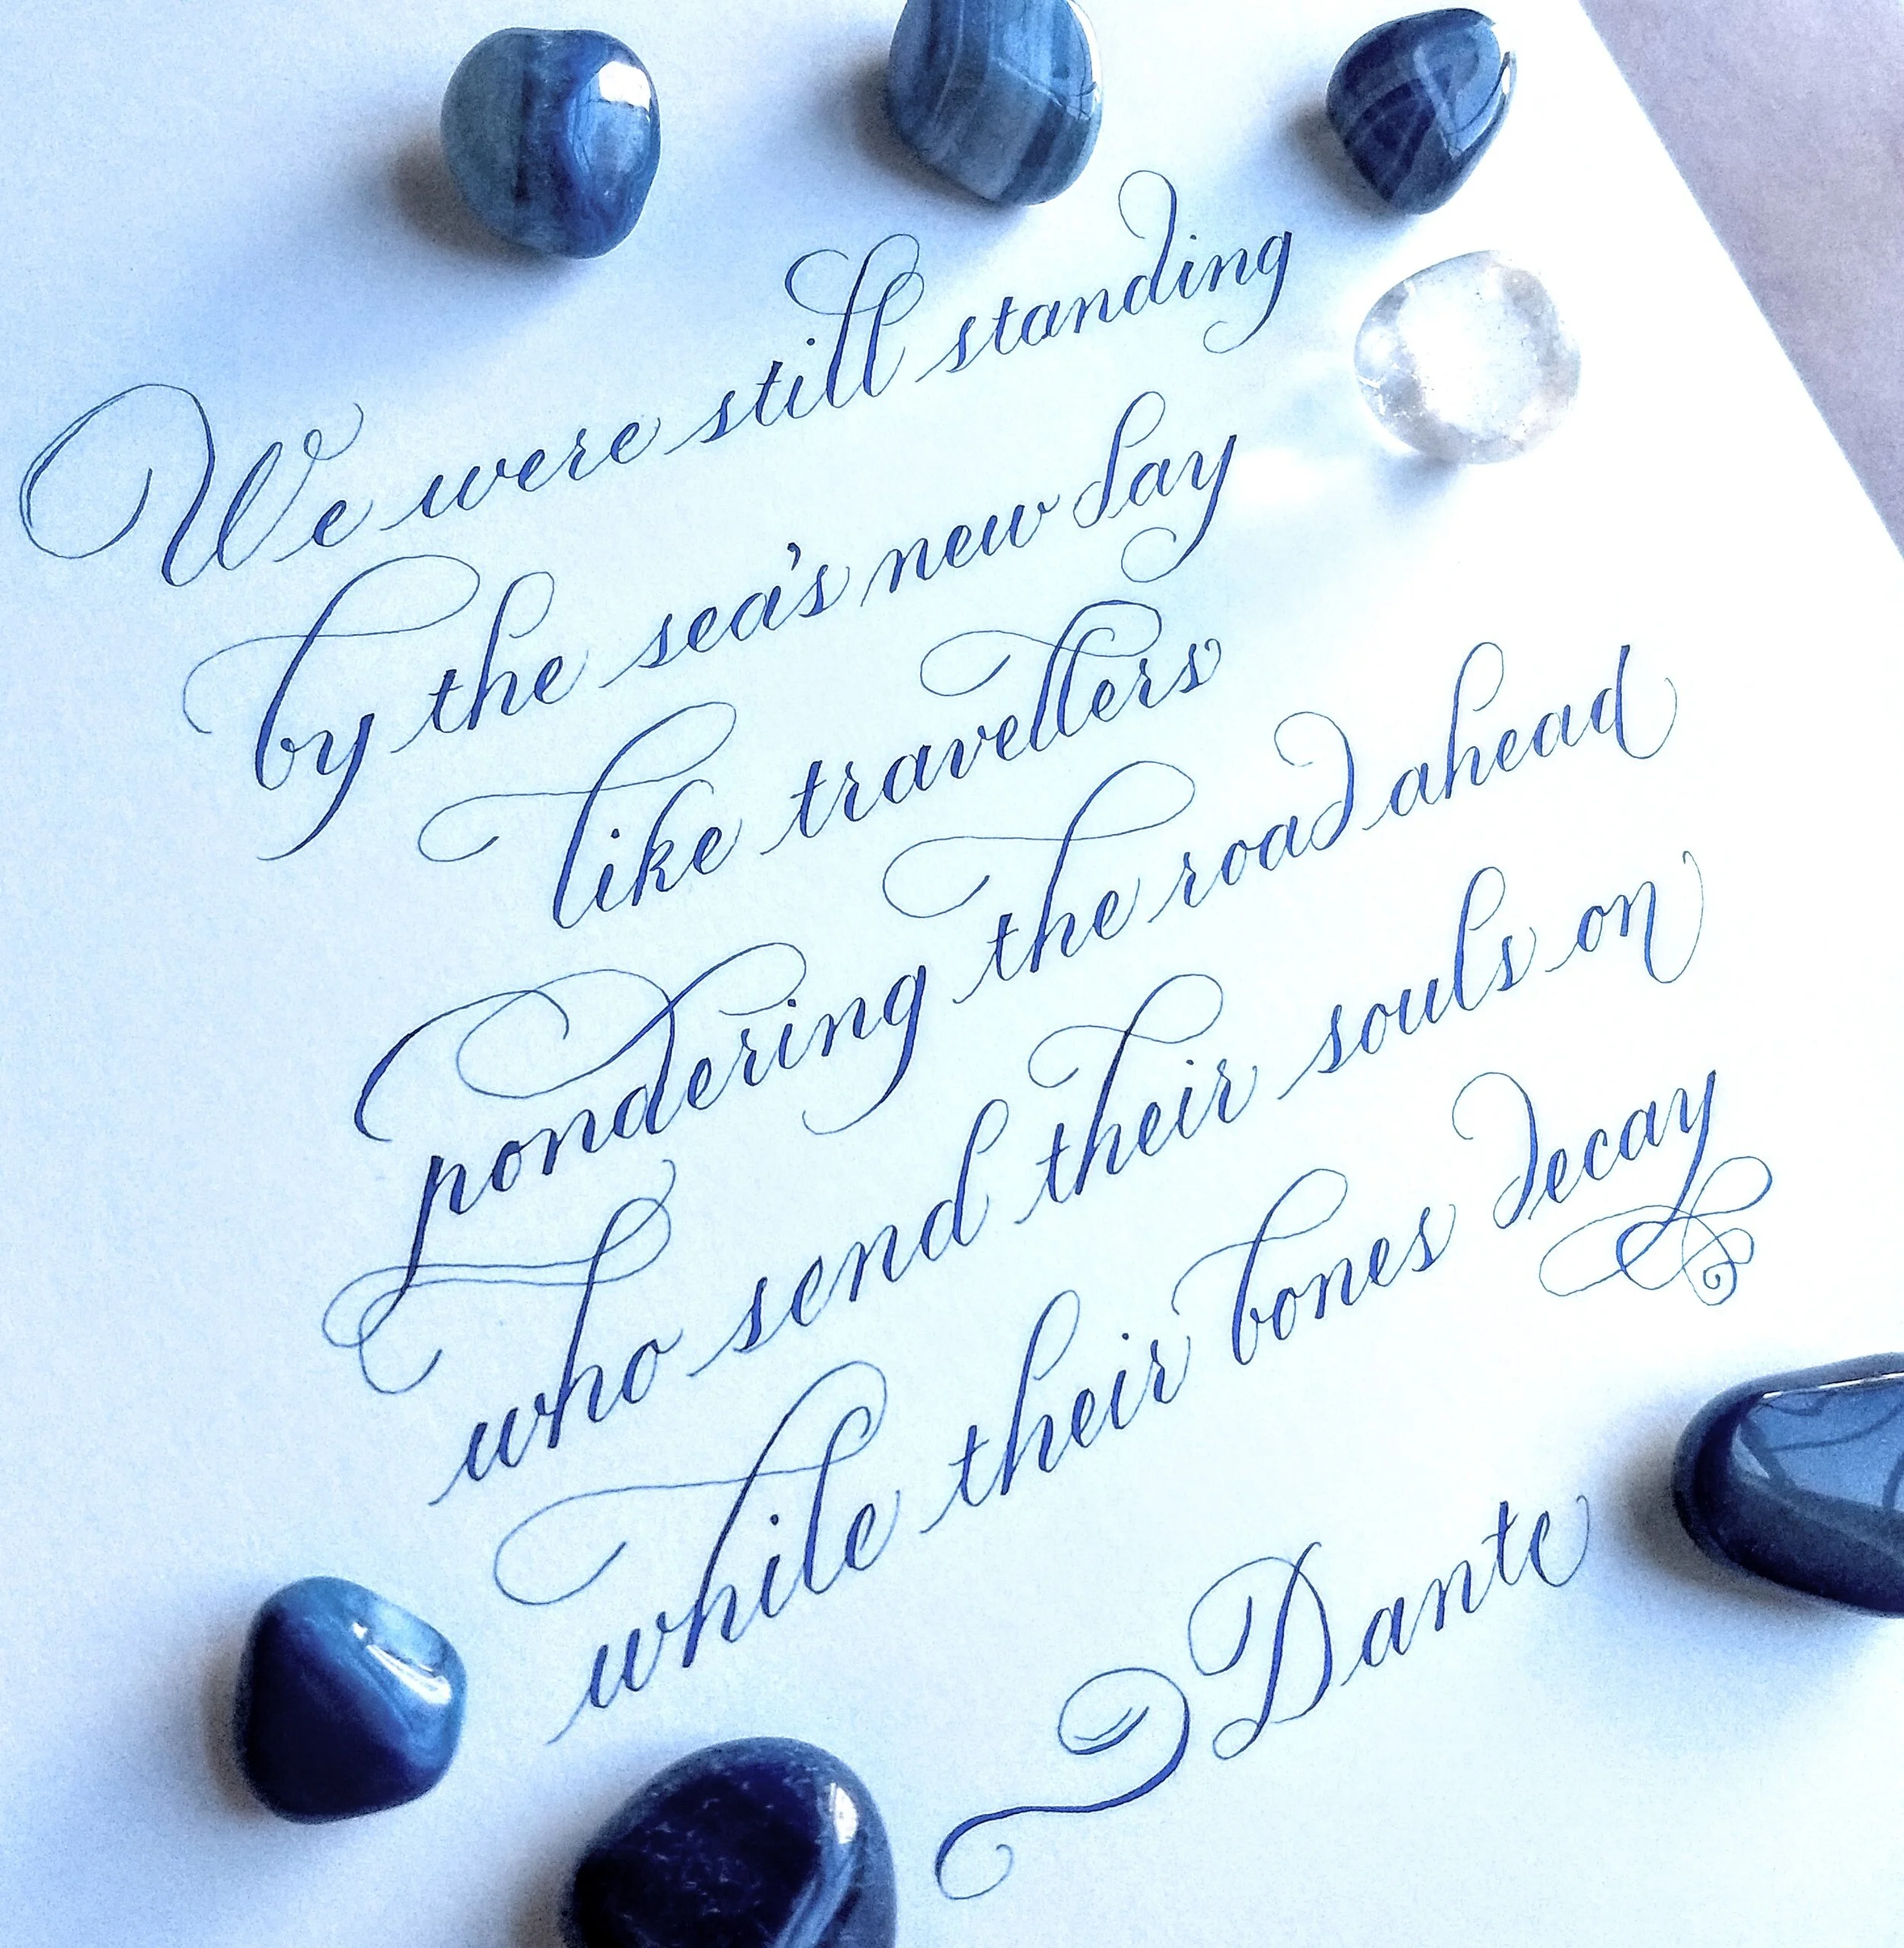 We were still standing
by the sea's new day
like travellers
pondering the road ahead
who send their souls on
while their bones decay
Dante